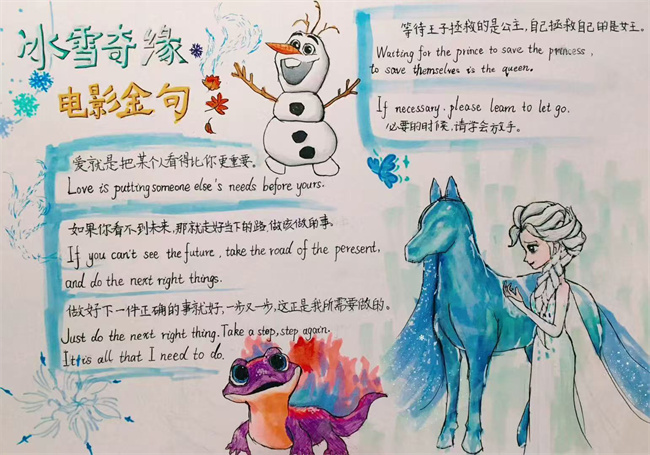 冰雪奇缘
电影金句
等待王子拯救的是公主,自己拯救自己的是女王。
Waiting for the prince to save the princess,
to save themselves is the queen.
If necessary, please learn to let go.
必要的时候,请学会放手。
爱就是把某个人看得比你更重要。
Love is putting someone else's needs before yours.
如果你看不到未来,那就走好当下的路,做该做的事。
If you can't see the future, take the road of the peresent,
and do the next right things.
做好下一件正确的事就好,一步又一步,这正是我所需要做的。
Just do the next right thing. Take a step, step again.
It is all that I need to do.